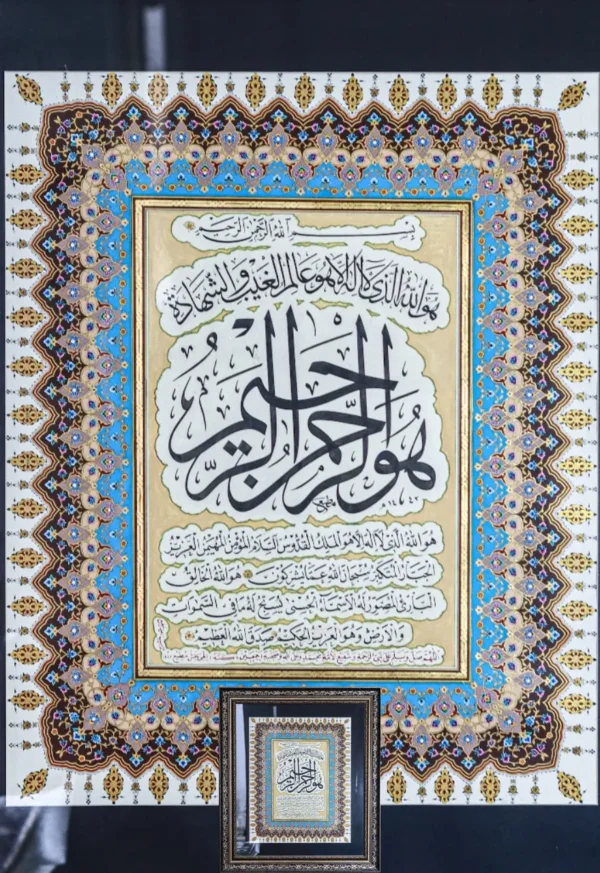 بسم الله الرحمن الرحيم
هو الله الذي لا اله الا هو عالم الغيب والشهادة
هو الرحمن الرحيم
هو الله الذي لا اله الا هو الملك القدوس السلام المؤمن المهيمن العزيز
الجبار المتكبر سبحان الله عما يشركون هو الله الخالق
البارئ المصور له الاسماء الحسنى يسبح له ما في السموات
والارض وهو العزيز الحكيم صدق الله العظيم
اللهم صل وسلم على نبي الرحمة وشفيع الامة محمد وعلى آله وصحبه اجمعين